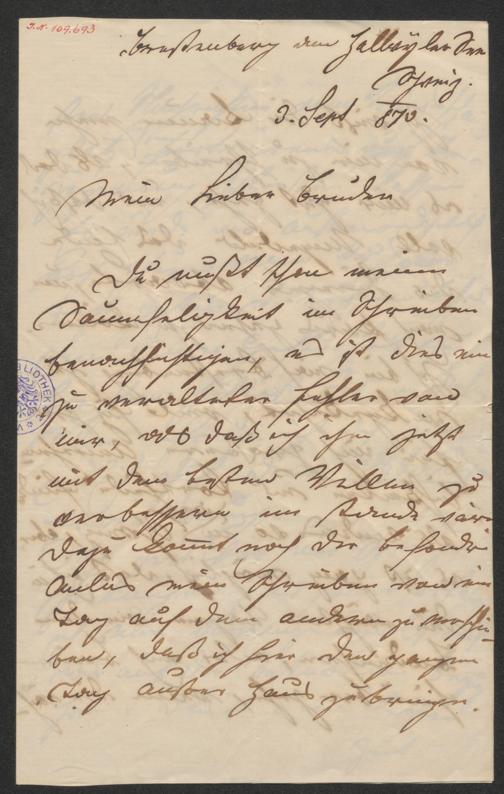 J.N. 109.693
Brestenberg am Hallwyler See
Schweiz.
3. Sept 870.
Mein lieber Bruder
Du mußt schon meine
Saumseligkeit im Schreiben
berücksichtigen, es ist dies ein
zu veralteter Fehler von
mir, als daß ich ihn jetzt
mit dem besten Willen zu
verbessern im Stande wäre
dazu kommt noch der besondere
Anlaß mein Schreiben von einem
Tag auf den andern zu verschie
ben, daß ich hier den ganzen
Tag außer Haus zubringe.
BLIOTHEK